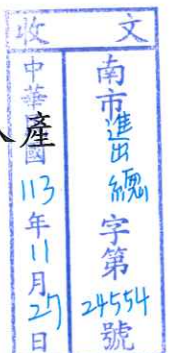 收文
南市進出總字第24554號
中華民國113年11月27日
產